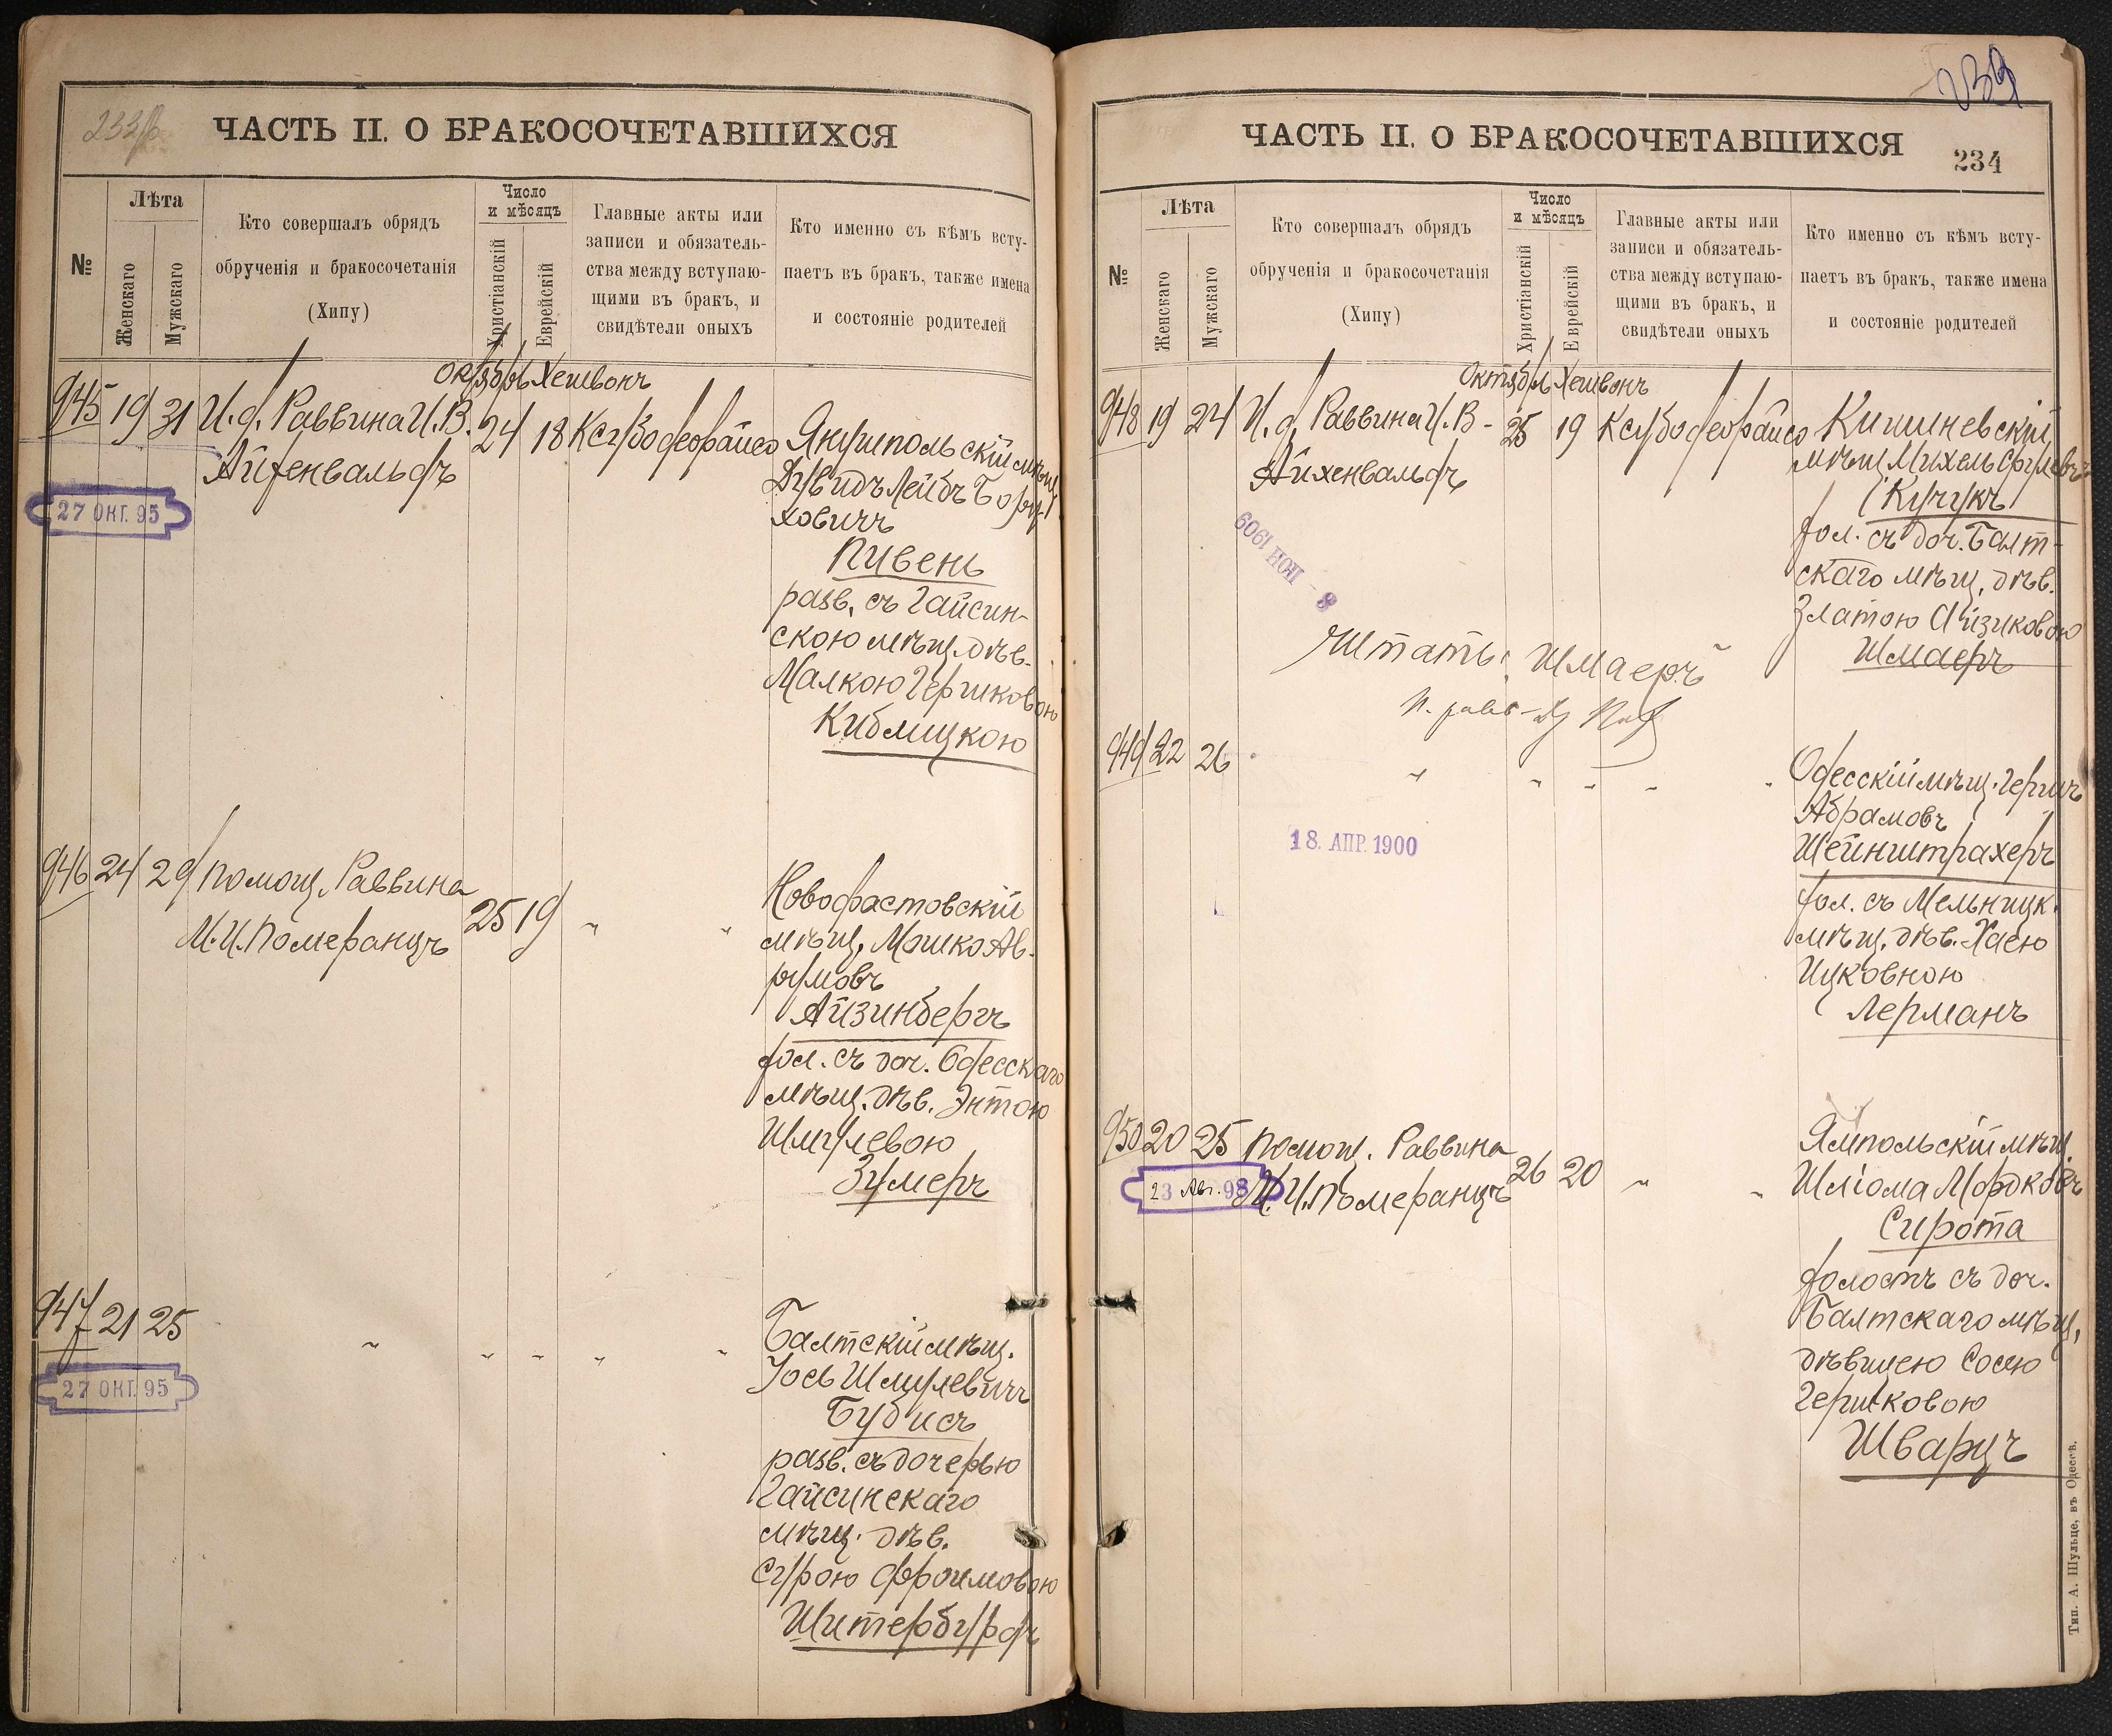 ЧАСТЬ II. О БРАКОСОЧЕТАВШИХСЯ
№
Лѣта
Женскаго
Мужскаго
Кто совершалъ обрядъ
обрученія и бракосочетанія
(Хипу)
Число
и мѣсяцъ
Христіанскій
Еврейскій
Главные акты или
записи и обязатель-
ства между вступаю-
щими въ бракъ, и
свидѣтели оныхъ
Кто именно съ кѣмъ всту-
паетъ въ бракъ, также имена
и состояніе родителей
Октябрь Хешвонъ
945 19 31 И. д. Раввина И. В. 24 18 Ксубо деорайсо
Айхенвальдъ
27 ОКТ. 95
Янушпольскій мѣщ.
Дувидъ Лейбъ Бору-
ховичъ
Пивень
разв. съ Гайсин-
скою мѣщ. дѣв.
Малкою Гершковою
Киблицкою
946 24 29 Помощ. Раввина 25 19 „ „
М. И. Померанцъ
Новофастовскій
мѣщ. Мошко Ав-
румовъ
Айзинбергъ
хол. съ доч. Одесскаго
мѣщ. дѣв. Энтою
Шмулевою
Зумеръ
947 21 25 „ „ „ „ „
27 ОКТ. 95
Балтскій мѣщ.
Іось Шмулевичъ
Бубисъ
разв. съ дочерью
Гайсинскаго
мѣщ. дѣв.
Сурою Фроимовою
Штербурдъ
ЧАСТЬ II. О БРАКОСОЧЕТАВШИХСЯ
234
№
Лѣта
Женскаго
Мужскаго
Кто совершалъ обрядъ
обрученія и бракосочетанія
(Хипу)
Число
и мѣсяцъ
Христіанскій
Еврейскій
Главные акты или
записи и обязатель-
ства между вступаю-
щими въ бракъ, и
свидѣтели оныхъ
Кто именно съ кѣмъ всту-
паетъ въ бракъ, также имена
и состояніе родителей
Октябрь Хешвонъ
948 19 24 И. д. Раввина И. В- 25 19 Ксубо деорайсо
Айхенвальдъ
8 - ІЮН 1909
Кишиневскій
мѣщ. Михель Срулевъ
Кучукъ
хол. съ доч. Балт-
скаго мѣщ. дѣв.
Златою Айзиковою
Шмаеръ
Читать: „Шмаеръ“
949 22 26 „ „ „ „ „
18. АПР. 1900
Одесскій мѣщ. Гершъ
Абрамовъ
Шейнштрахеръ
хол. съ Мельницк.
мѣщ. дѣв. Хаею
Ицковною
Лерманъ
950 20 25 Помощ. Раввина 26 20 „ „
М. И. Померанцъ
23 Авг. 98
Ямпольскій мѣщ.
Шліома Мордковъ
Сирота
холостъ съ доч.
Балтскаго мѣщ.
дѣвицею Сосею
Гершковою
Шварцъ
Тип. А. Шульце, въ Одессѣ.